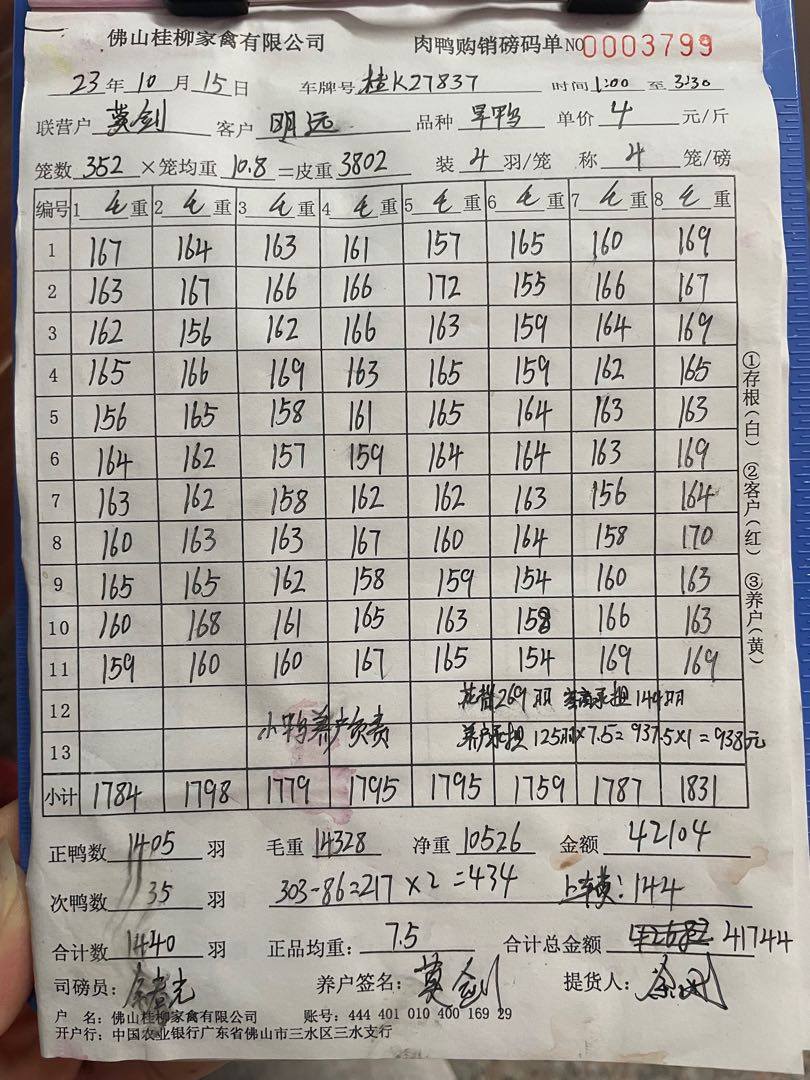 佛山桂柳家禽有限公司 肉鸭购销磅码单 NO 0003799
23 年 10 月 15 日 车牌号 桂K27837 时间 1:00 至 3:30
联营户 莫剑 客户 明远 品种 旱鸭 单价 4 元/斤
笼数 352 ×笼均重 10.8 =皮重 3802 装 4 羽/笼 称 4 笼/磅
编号 1 毛 重 2 毛 重 3 毛 重 4 毛 重 5 毛 重 6 毛 重 7 毛 重 8 毛 重
1 167 164 163 161 157 165 160 169
2 163 167 166 166 172 155 166 167
3 162 156 162 166 163 159 164 169
4 165 166 169 163 165 159 162 165
5 156 165 158 161 165 164 163 163
6 164 162 157 159 164 164 163 169
7 163 162 158 162 162 163 156 164
8 160 163 163 167 160 164 158 170
9 165 165 162 158 159 154 160 163
10 160 168 161 165 163 158 166 163
11 159 160 160 167 165 154 169 169
12 269羽 承担144羽
13 小鸭养户负责 养户承担 125羽×7.5=937.5×1=938元
小计 1784 1798 1779 1795 1795 1759 1787 1831
正鸭数 1405 羽 毛重 14328 净重 10526 金额 42104
次鸭数 35 羽 303-86=217×2=434 上车费:144
合计数 1440 羽 正品均重: 7.5 合计总金额 41744
司磅员: 养户签名: 莫剑 提货人:
户 名:佛山桂柳家禽有限公司 账号:444 401 010 400 169 29
开户行:中国农业银行广东省佛山市三水区三水支行
①存根(白) ②客户(红) ③养户(黄)